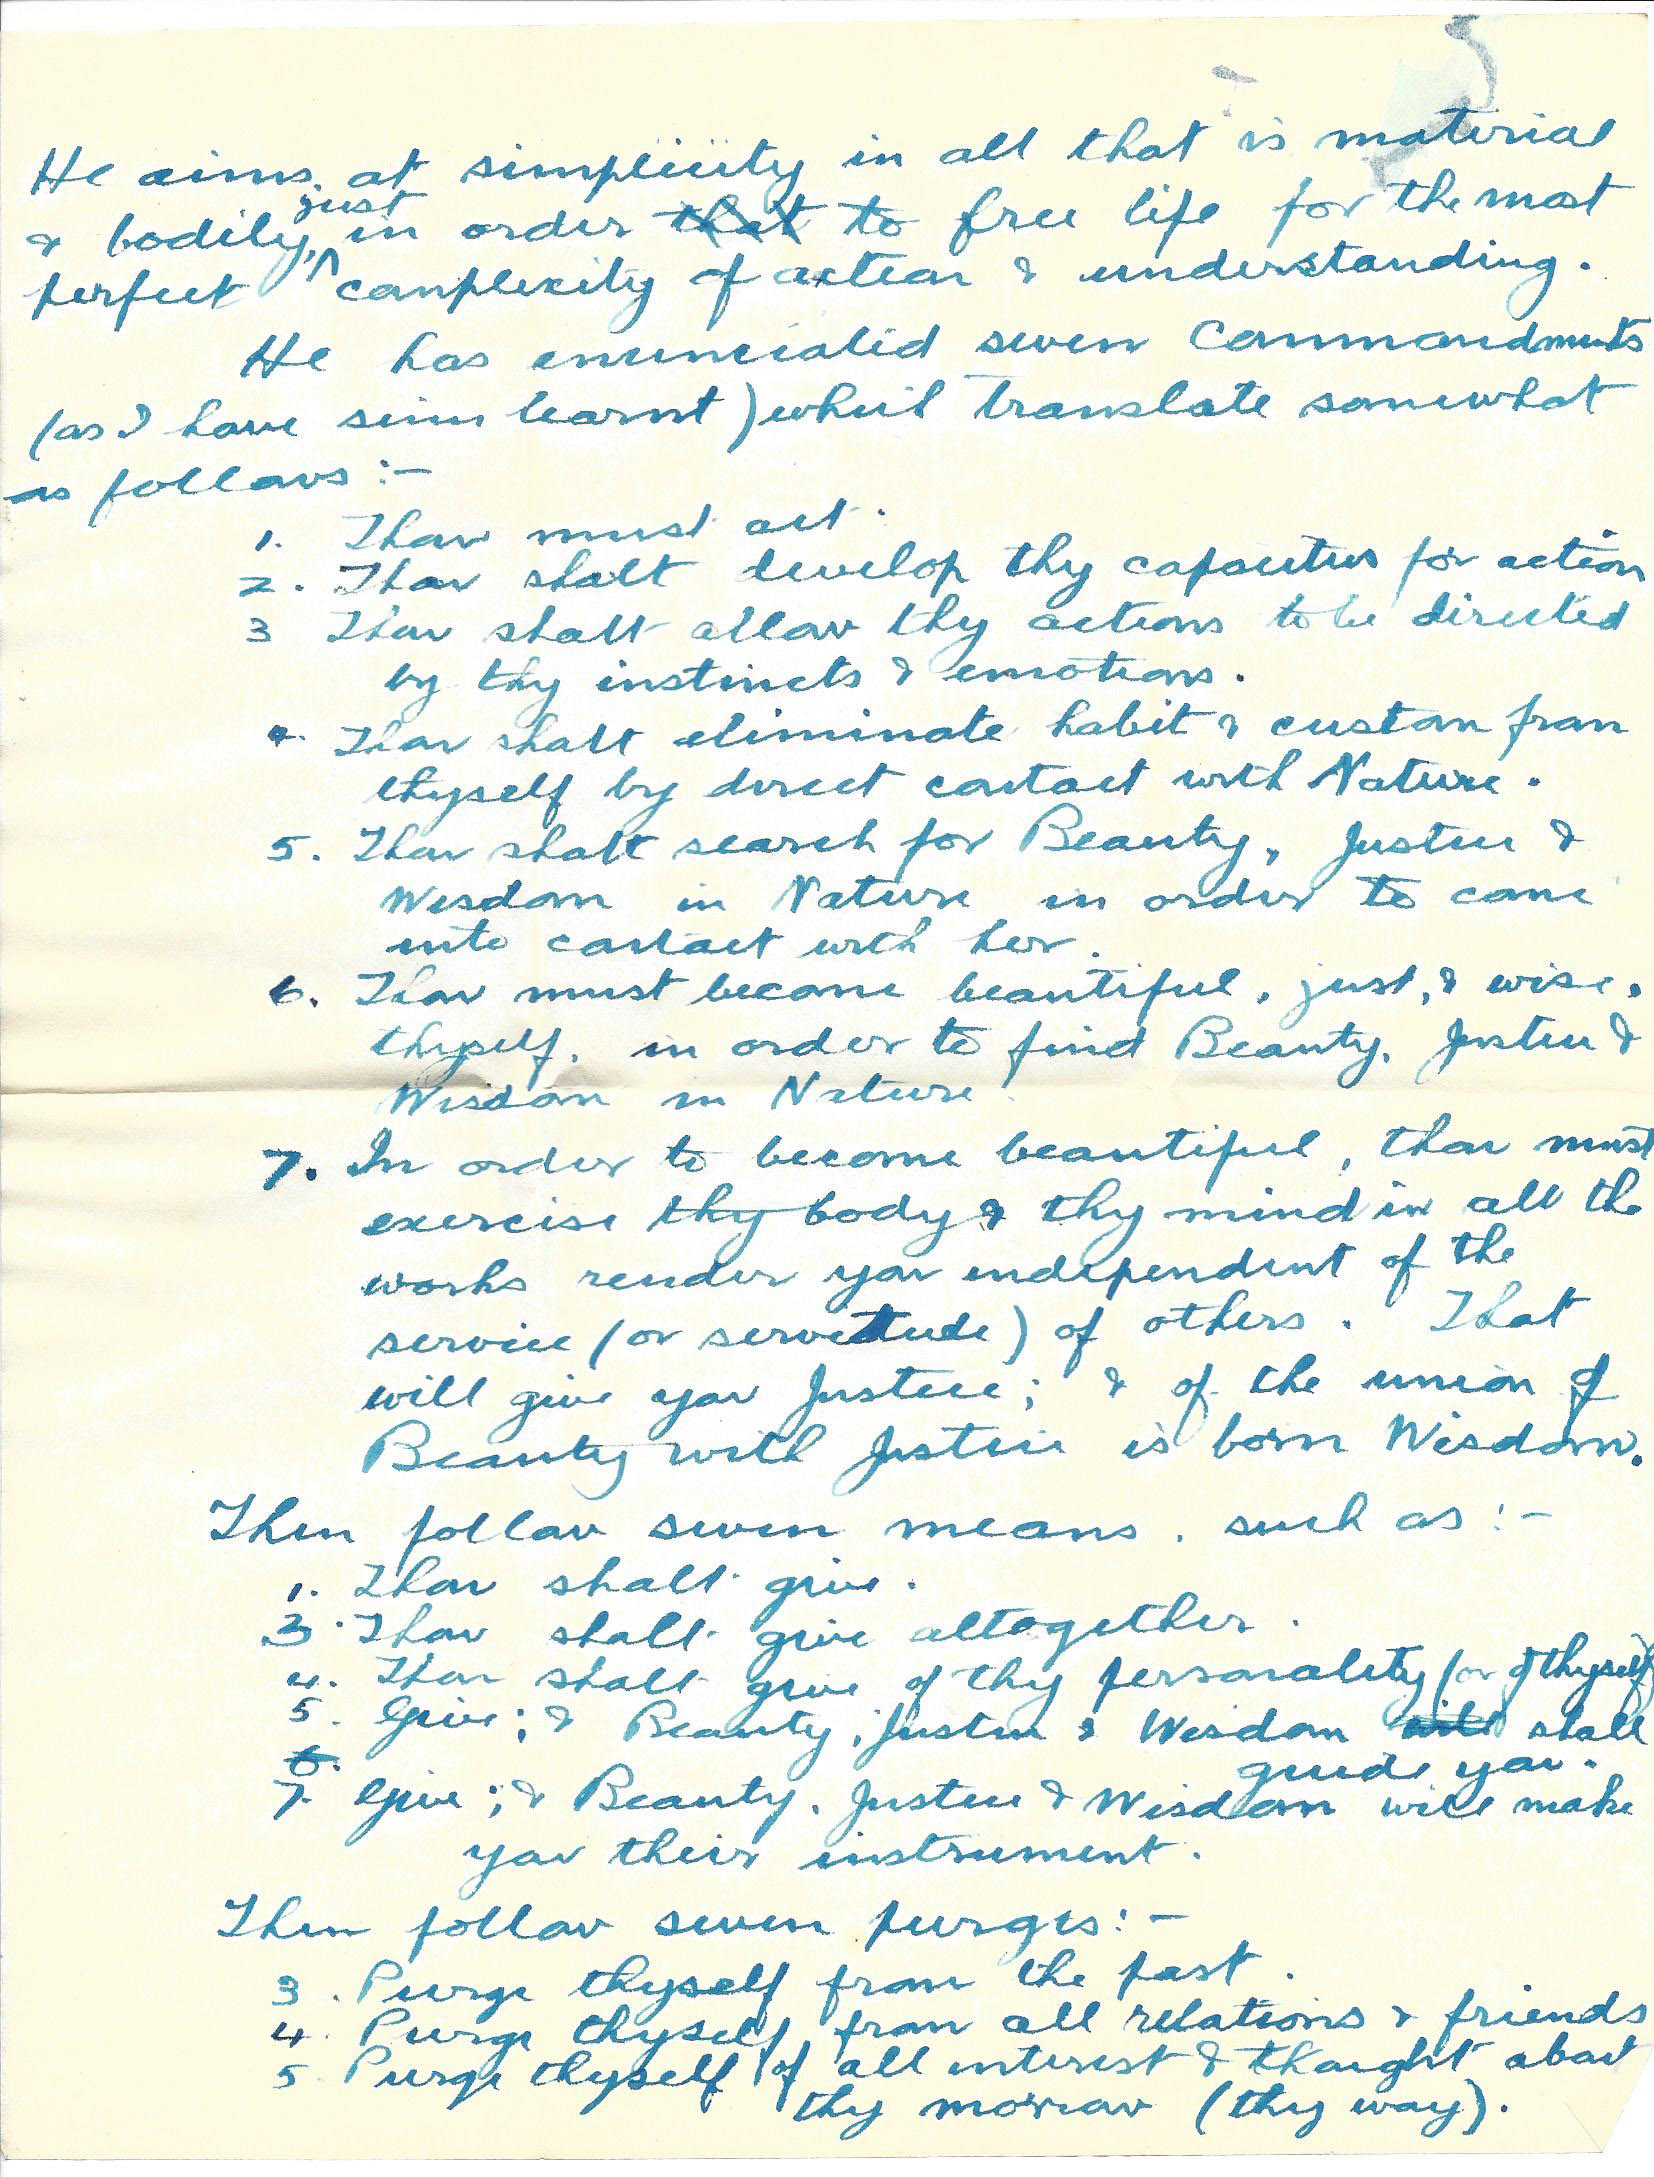 He aims at simplicity in all that is material
& bodily, just in order that to free life for the most
perfect complexity of action & understanding.
He has enunciated seven Commandments
(as I have since learnt) which translate somewhat
as follows :-
1. Thou must act.
2. Thou shalt develop thy capacities for action
3 Thou shalt allow thy actions to be directed
by thy instincts & emotions.
4. Thou shalt eliminate habit & custom from
thyself by direct contact with Nature.
5. Thou shalt search for Beauty, Justice &
Wisdom in Nature in order to come
into contact with her.
6. Thou must become beautiful, just, & wise,
thyself, in order to find Beauty, Justice &
Wisdom in Nature.
7. In order to become beautiful, thou must
exercise thy body & thy mind in all the
works render you independent of the
service (or servitude) of others. That
will give you Justice; & of the union of
Beauty with Justice is born Wisdom.
Then follow seven means, such as :-
1. Thou shalt give.
3. Thou shalt give altogether.
4. Thou shalt give of thy personality (or of thyself)
5. Give; & Beauty, Justice & Wisdom will shall
guide you.
6.
7. Give; & Beauty, Justice & Wisdom will make
you their instrument.
Then follow seven purges :-
3. Purge thyself from the past.
4. Purge thyself from all relations & friends
5. Purge thyself of all interest & thought about
thy morrow (thy way).